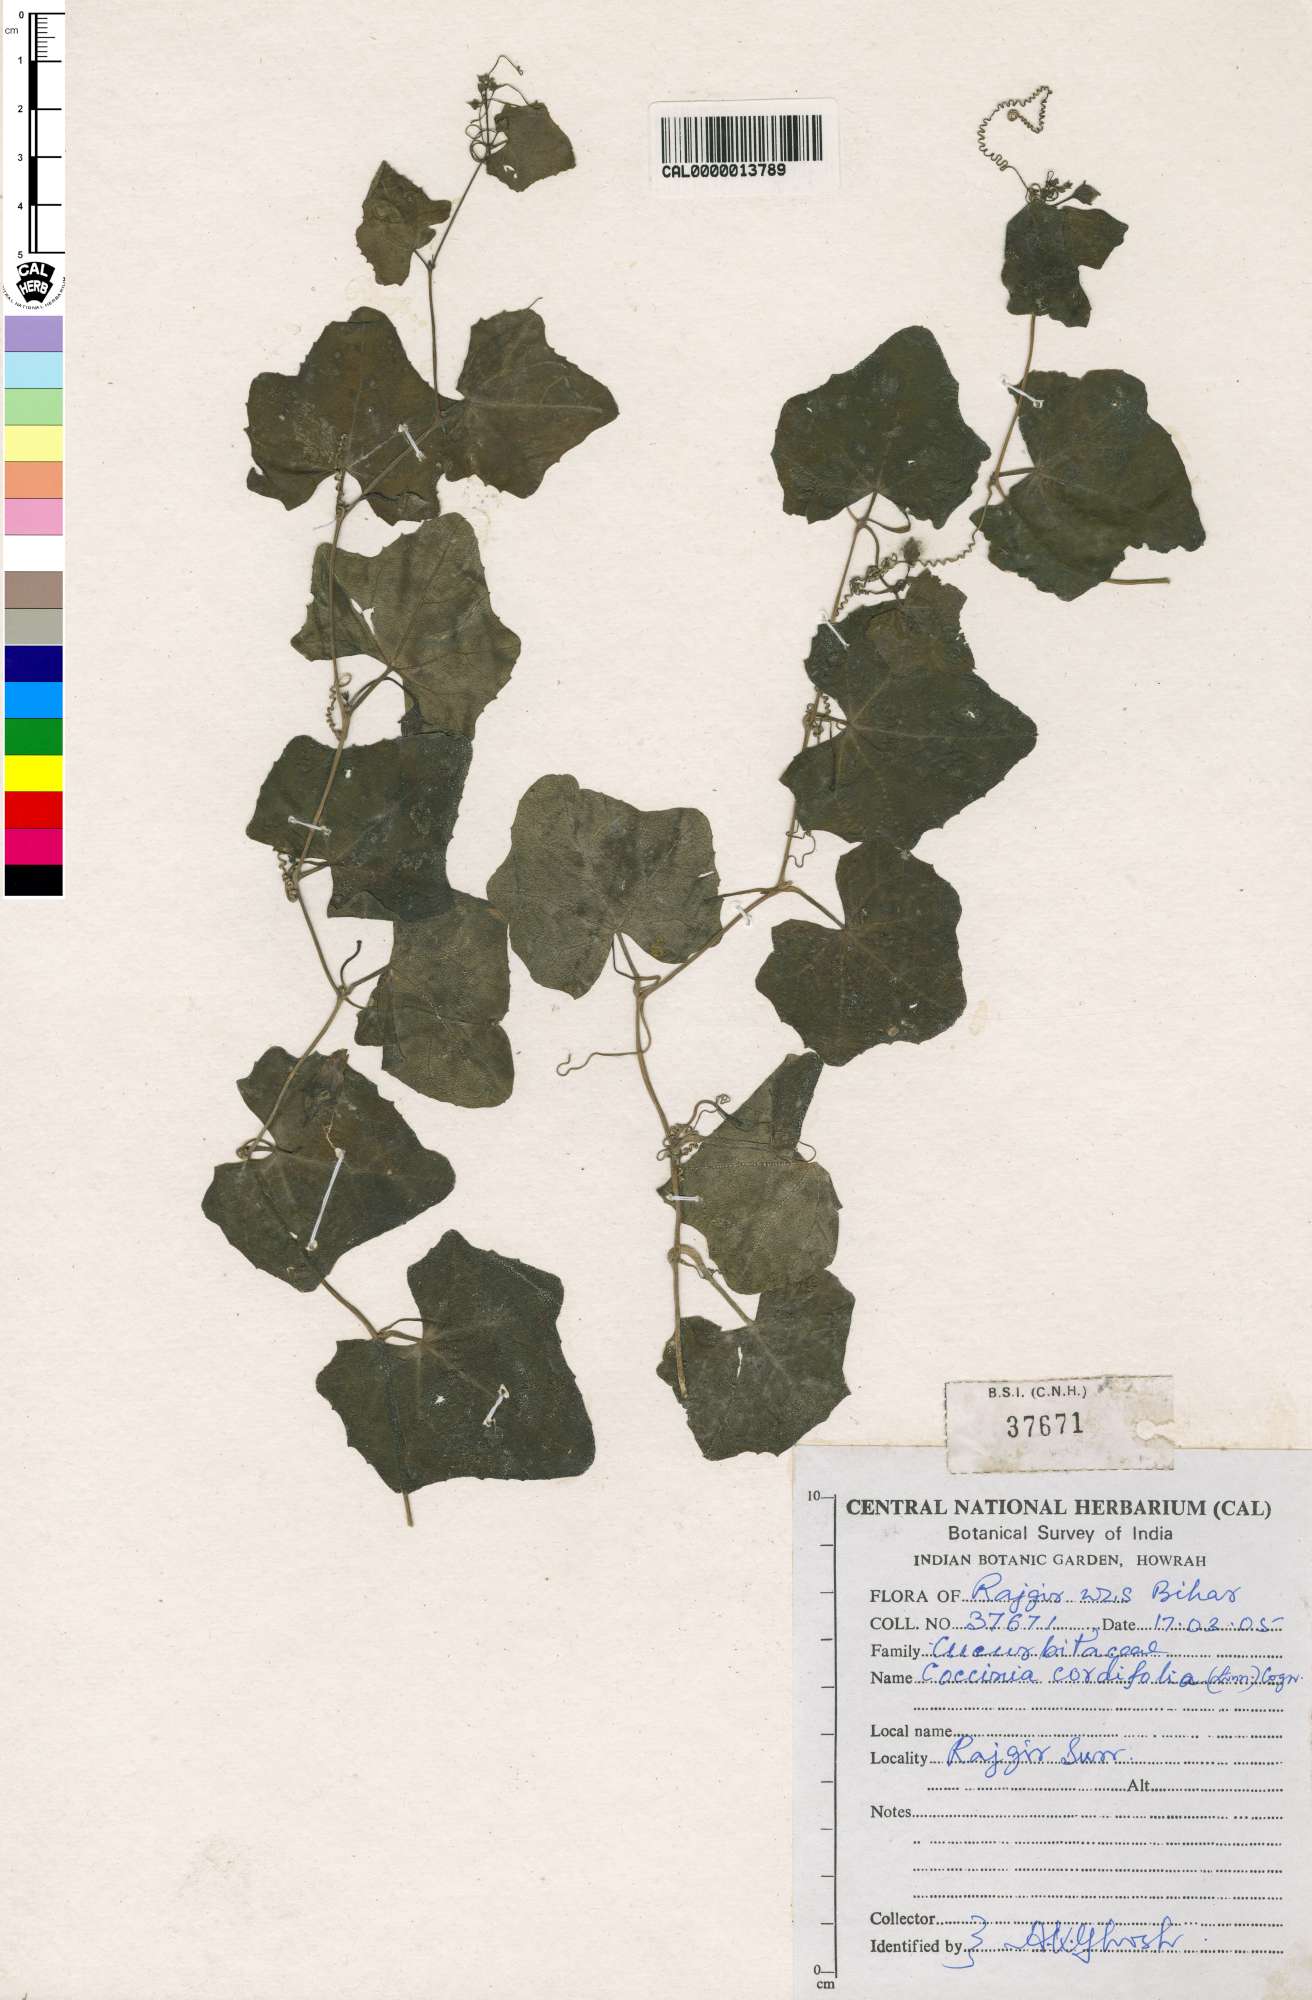 0
cm
1
2
3
4
5
CAL
HERB
CENTRAL NATIONAL HERBARIUM
CAL0000013789
B.S.I. (C.N.H.)
37671
10
CENTRAL NATIONAL HERBARIUM (CAL)
Botanical Survey of India
INDIAN BOTANIC GARDEN, HOWRAH
FLORA OF Rajgir WLS Bihar
COLL. NO 37671 Date 17.03.05
Family Cucurbitaceae
Name Coccinia cordifolia (Linn) Cogn.
Local name
Locality Rajgir Surr.
Alt.
Notes
Collector
Identified by } A.K.Ghosh
0
cm